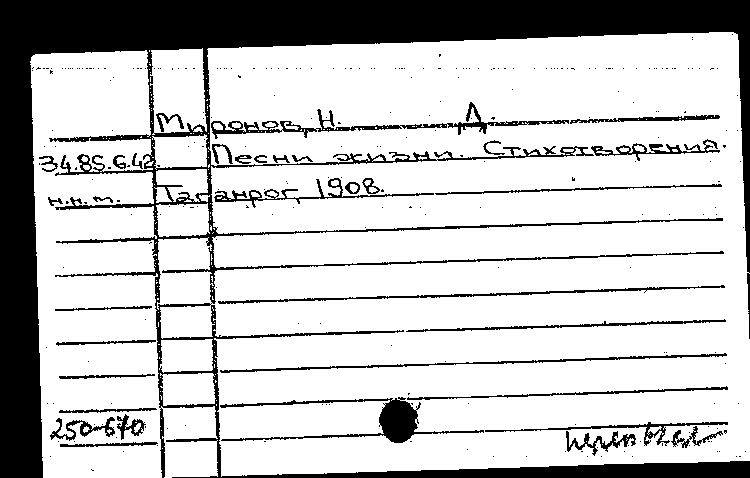 Миронов, Н. Д.
34.85.6.42 Песни жизни. Стихотворения.
н.н.т. Таганрог, 1908.
250-670